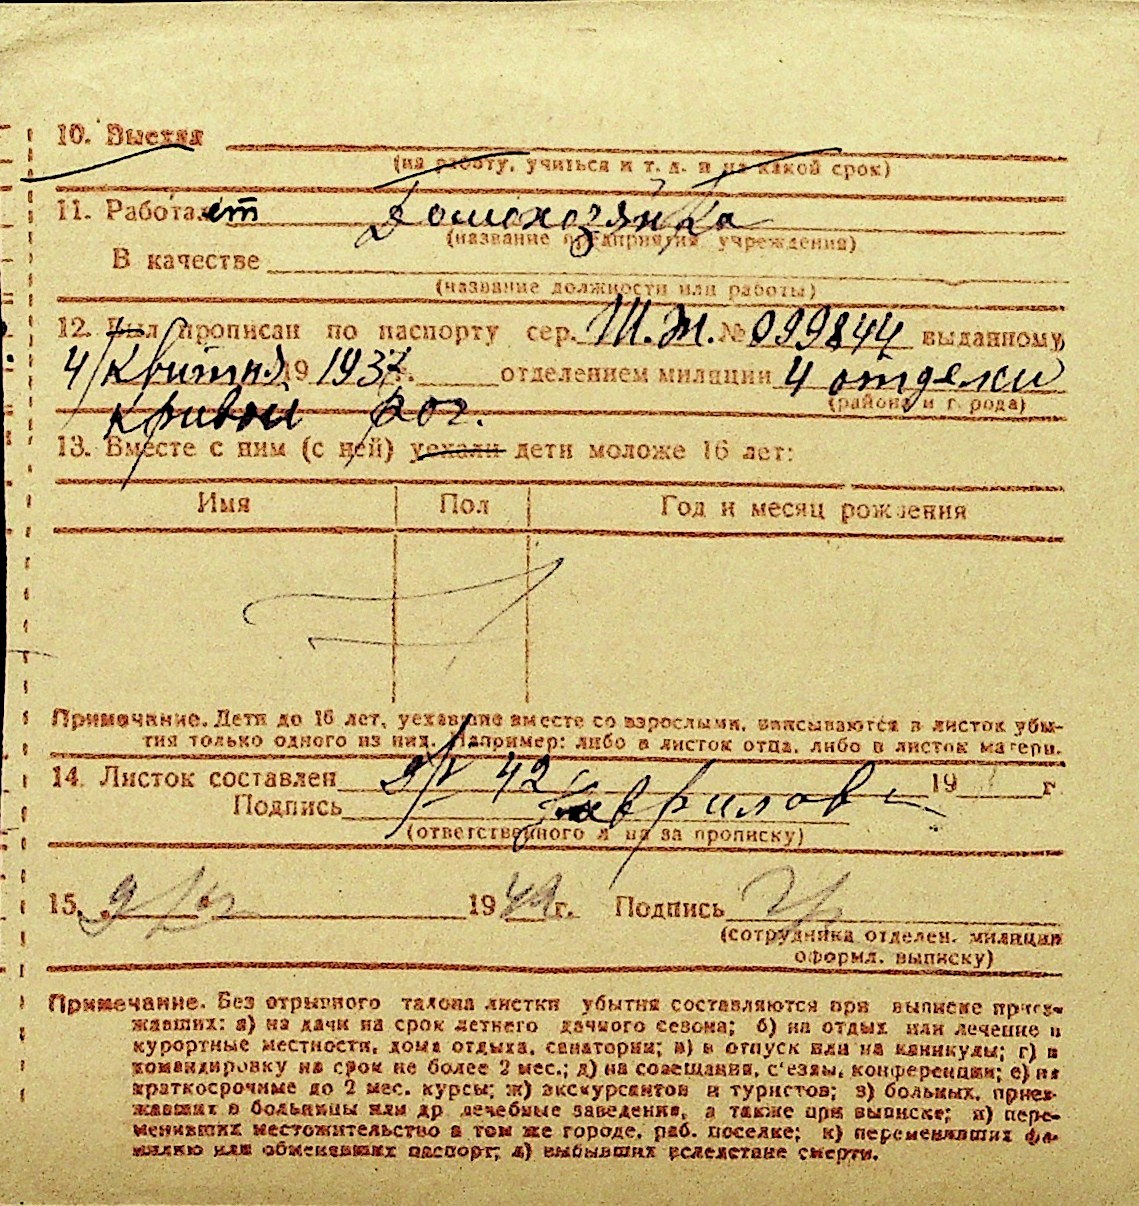 10. Выехал
(на работу, учиться и т. д. и на какой срок)
11. Работает Домохозяйка
(название предприятия учреждения)
В качестве
(название должности или работы)
12. Был прописан по паспорту сер. Ш.Ж. № 099844 выданному
4/Квитня 19 1937 г. отделением милиции 4 отделки
(района и города)
Кривой Рог.
13. Вместе с ним (с ней) уехали дети моложе 16 лет:
Имя Пол Год и месяц рождения
Примечание. Дети до 16 лет, уехавшие вместе со взрослыми, вписываются в листок убы-
тия только одного из них. Например: либо в листок отца, либо в листок матери.
14. Листок составлен 9/V 42 19 г
Подпись Гаврилова
(ответственного л на за прописку)
15. 9 1942 г. Подпись
(сотрудника отделен. милиции
оформл. выписку)
Примечание. Без отрывного талона листки убытия составляются при выписке приез-
жавших: а) на дачи на срок летнего дачного сезона; б) на отдых или лечение в
курортные местности, дома отдыха, санатории; в) в отпуск или на каникулы; г) в
командировку на срок не более 2 мес.; д) на совещания, с'езды, конференции; е) на
краткосрочные до 2 мес. курсы; ж) экскурсантов и туристов; з) больных, приез-
жавших в больницы или др лечебные заведения, а также при выписке; и) пере-
менивших местожительство в том же городе, раб. поселке; к) переменявших фа-
милию или обменявших паспорт; л) выбывших вследствие смерти.